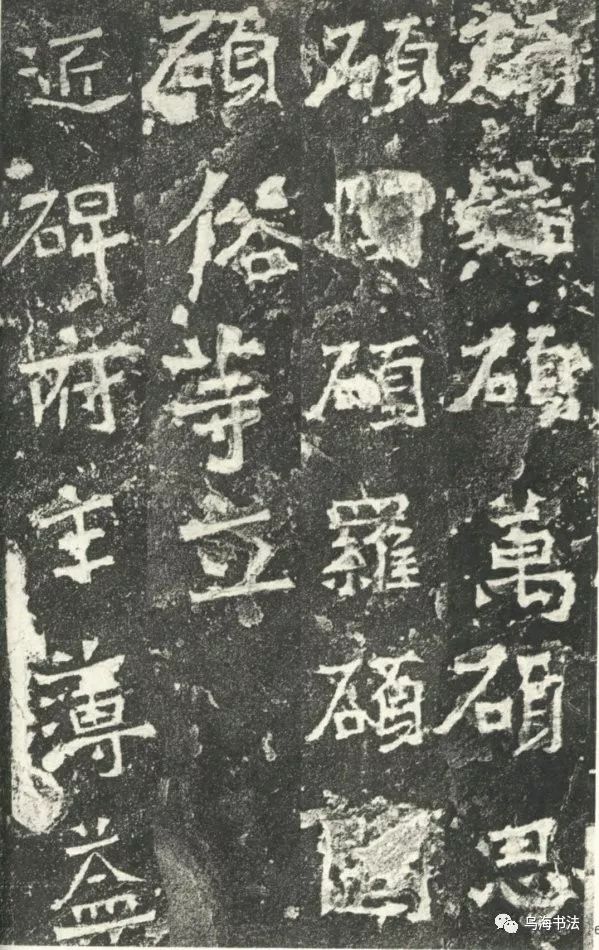 碩萬碩思
碩碩羅碩
碩俗等立
近碑府主薄益
乌海书法